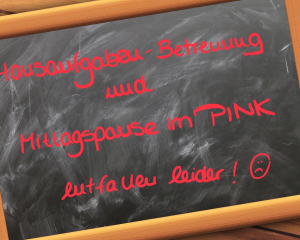 Hausaufgaben-Betreuung
und
Mittagspause im PINK
entfallen leider! ☹